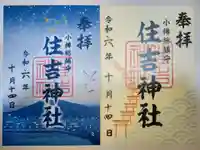 奉拝
小樽総鎮守
住吉神社
令和六年
十月十四日
奉拝
小樽総鎮守
住吉神社
令和六年
十月十四日